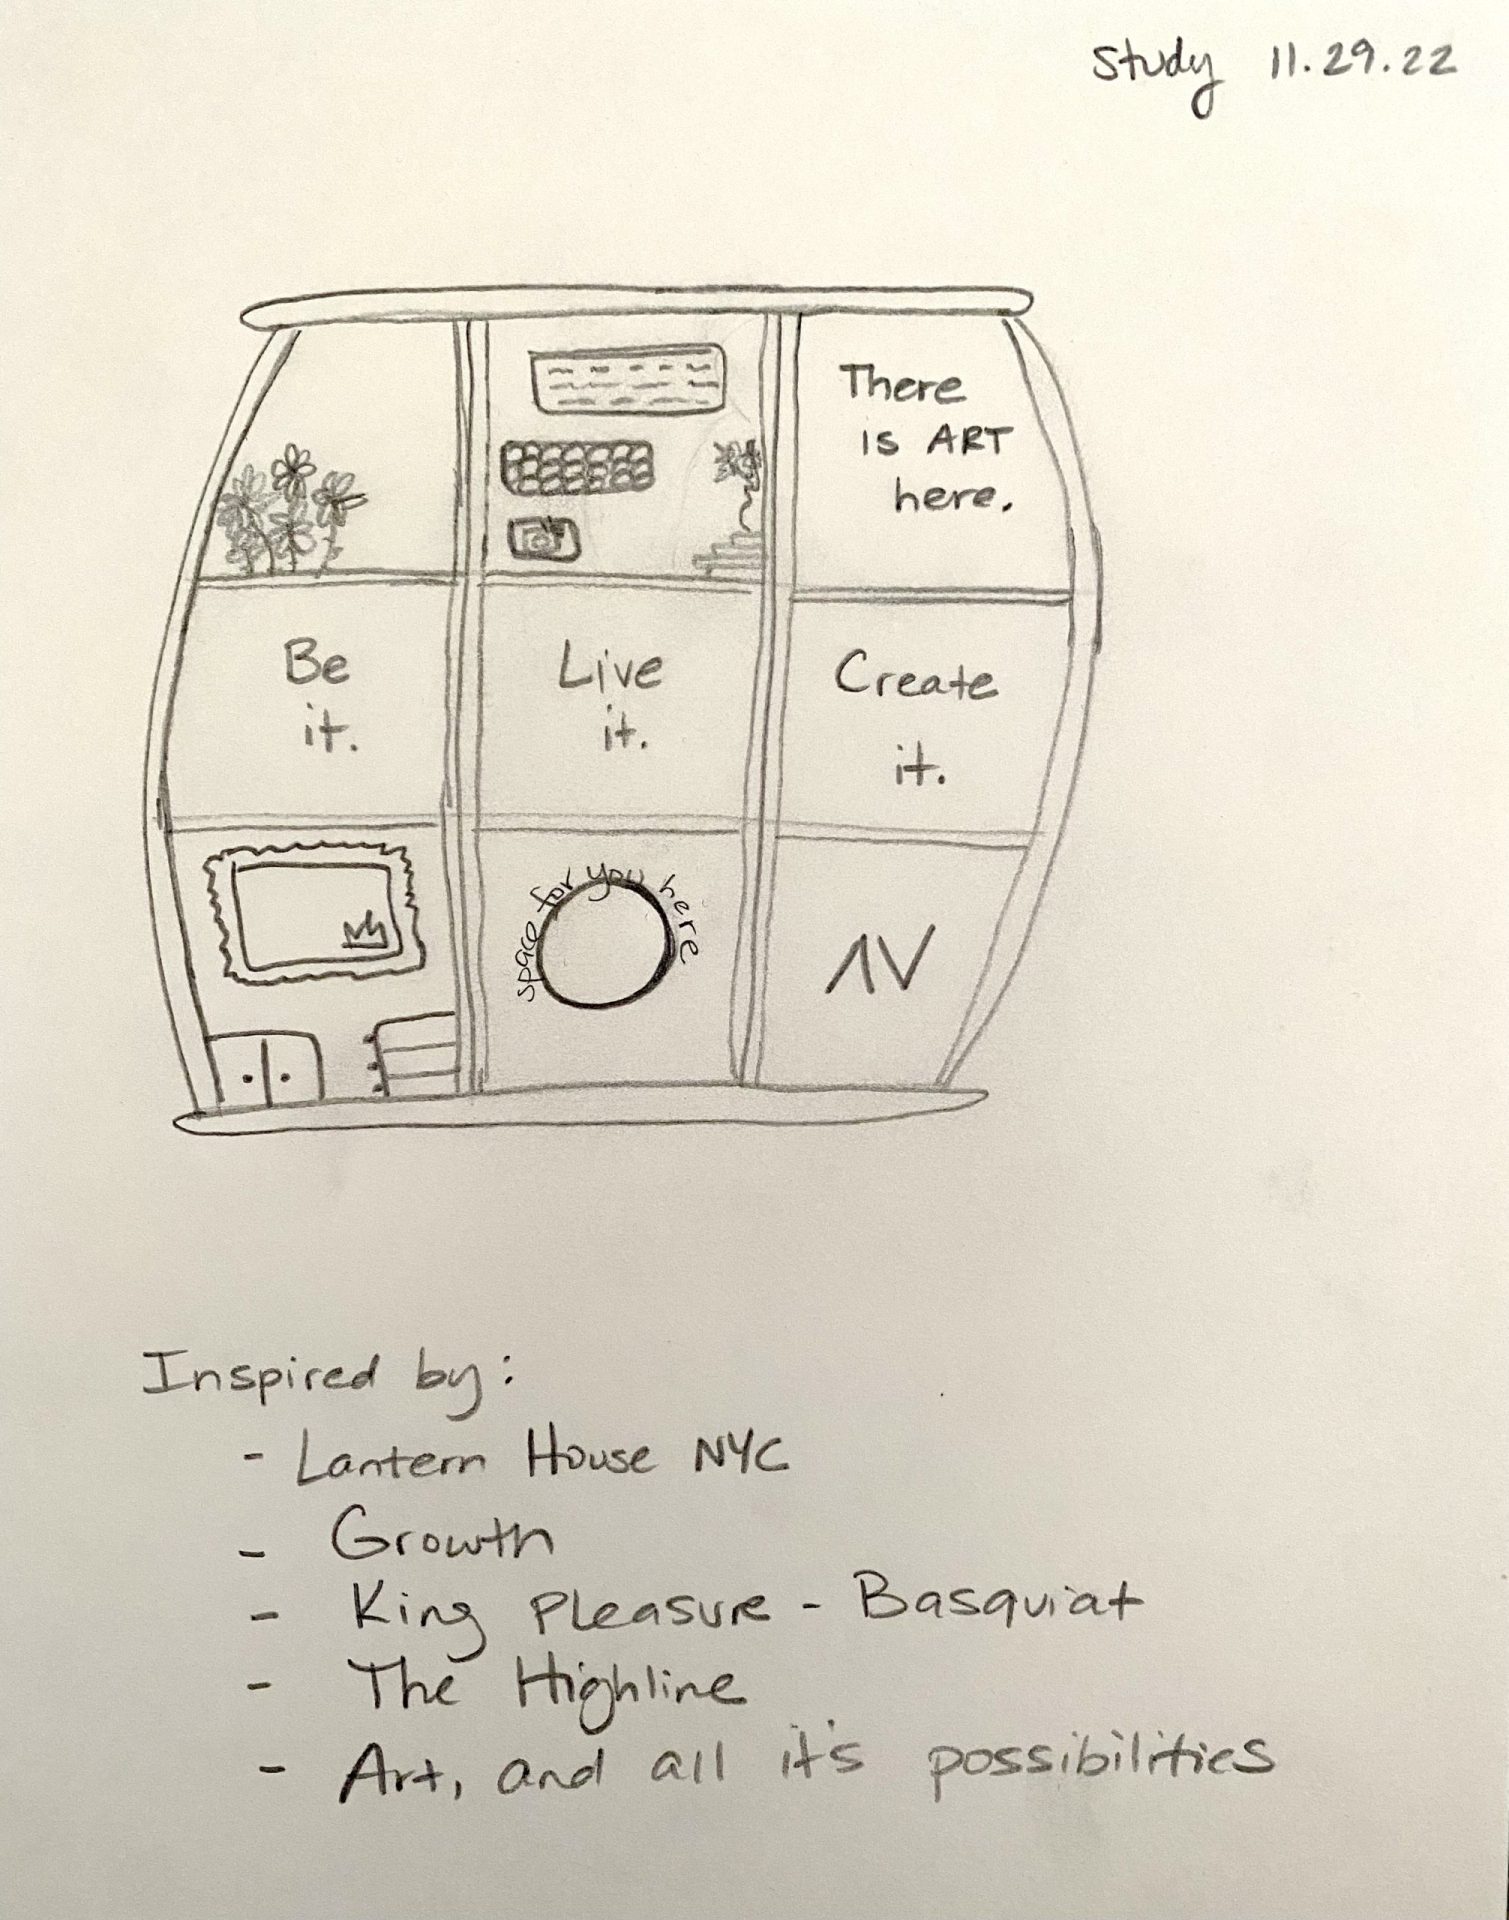 Study 11.29.22
There
is ART
here.
Be
it.
Live
it.
Create
it.
space for you here
ΛV
Inspired by:
- Lantern House NYC
- Growth
- King Pleasure - Basquiat
- The Highline
- Art, and all it's possibilities